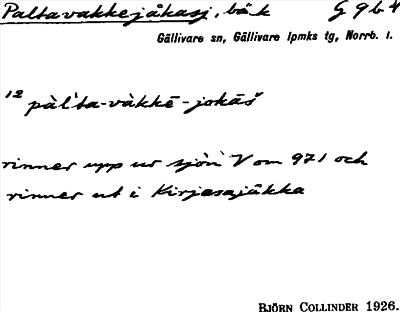 Paltavakkejåkasj, bäk G 9 b 4
Gällivare sn, Gällivare lpmks tg, Norrb. l.
12 pàl'ta-vàkkē-jokāš
rinner upp ur sjön V om 971 och
rinner ut i Kirjesajåkka
BJÖRN COLLINDER 1926.